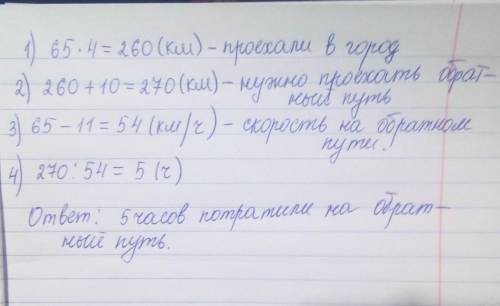 1) 65 · 4 = 260 (км) – проехали в город
2) 260 + 10 = 270 (км) – нужно проехать обрат-
ный путь
3) 65 – 11 = 54 (км/ч) – скорость на обратном
пути.
4) 270 : 54 = 5 (ч)
Ответ: 5 часов потратили на обрат-
ный путь.